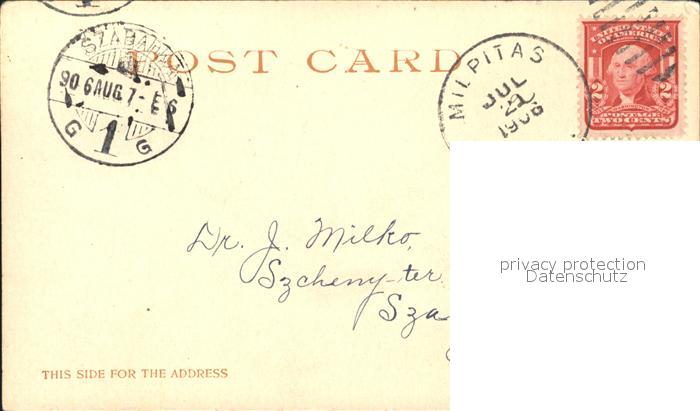 POST CARD
906 AUG. 7
G 1 G
MILPITAS
JUL
1906
UNITED STATES
OF AMERICA
2 2
POSTAGE
TWO CENTS
Dr. J. Milko,
Szcheny-ter
Sza
privacy protection
Datenschutz
THIS SIDE FOR THE ADDRESS